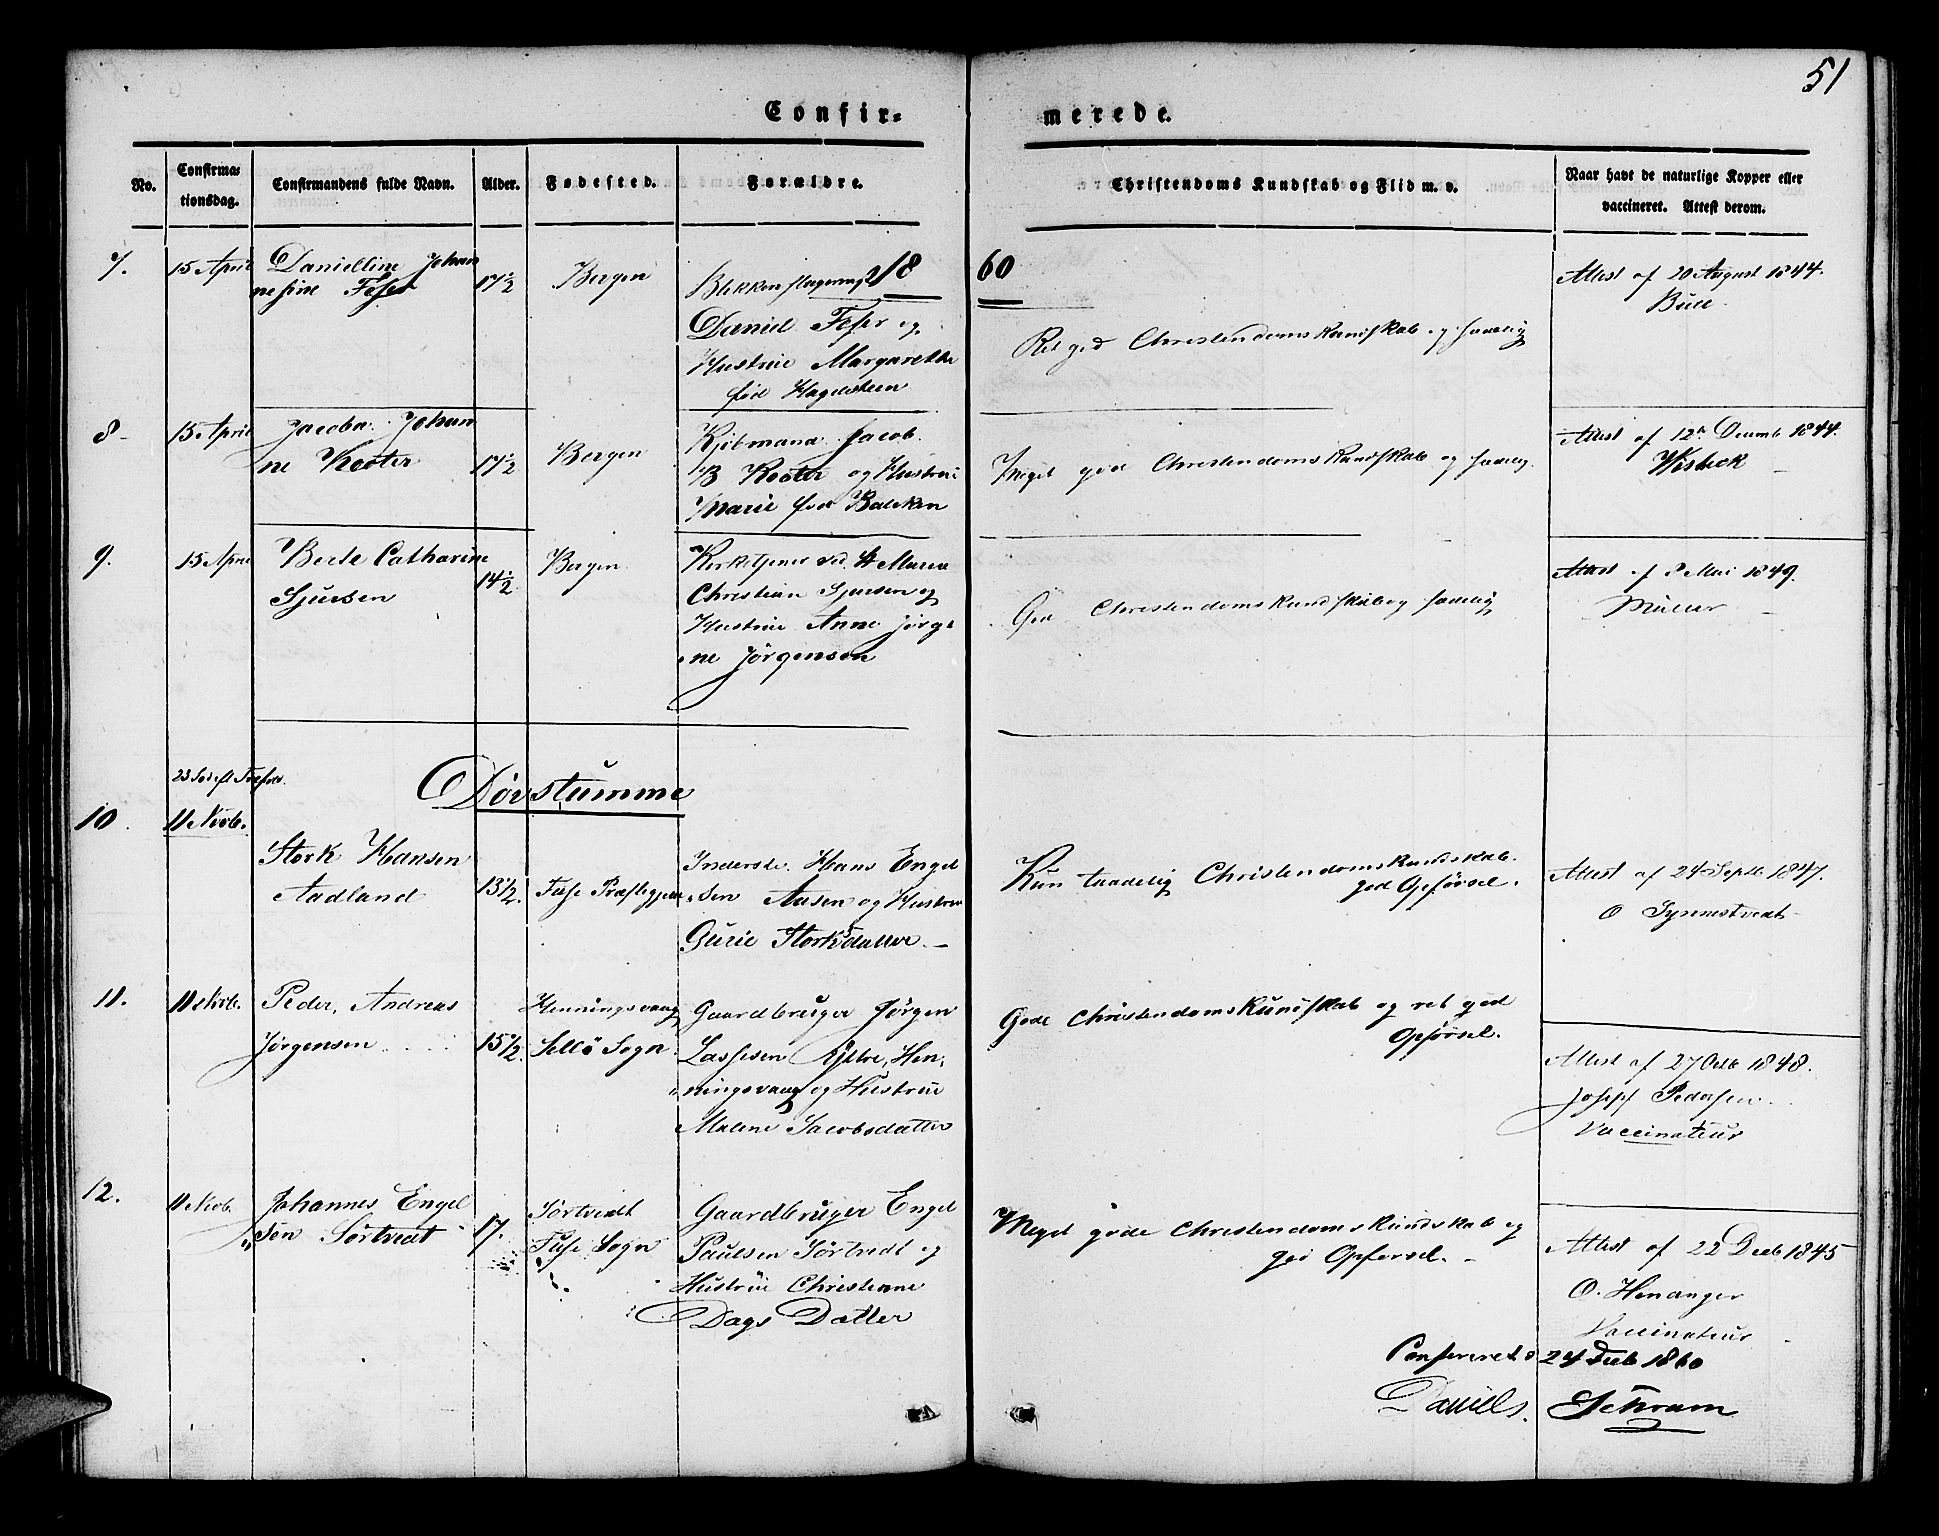 51
Confir-
merede.
No.
Confirma-
tionsdag.
Confirmandens fulde Navn.
Alder.
Fødested.
Forældre.
Christendoms Kundskab og Flid m. v.
Naar havt de naturlige Kopper eller
vaccineret. Attest derom.
18
60
7.
15 April
Danielline Johan
nesine Feser
17 1/2
Bergen
Daniel Feser og
Hustrue Margarethe
fød Hagelsteen
Ret god Christendomskundskab og sædelig
Attest af 20 August 1844.
Bull
8
15 April
Jacoba Johan
ne Koster
17 1/2
Bergen
Kjöbmand Jacob
B Koster og Hustrue
Marie fød Balcken
Meget god Christendomskundskab og sædelig
Attest af 12te Decemb 1844.
Wisbeck
9.
15 April
Bede Catharine
Sjursen
14 1/2
Bergen
Kirketjener ved St Maria
Christian Sjursen og
Hustrue Anne Jörgi
ne Jörgensen
God Christendomskundskab og sædelig
Attest af 8 Mai 1849.
Müller
Døvstumme
10.
11 Novb.
Stork Hansen
Aadland
13 1/2.
Fuse Præstegjeld
Inderste Hans Engel
sen Ausen og Hustrue
Gurie Storksdatter
Kun taadelig Christendomskundskab
god Opførsel.
Attest af 24 Septb 1847.
O Tynnstvedt
11.
11 Novb.
Peder Andreas
Jörgensen
15 1/2.
Henningsvaag
Sellö Sogn
Gaardbruger Jörgen
Lassesen Ystre, Hen-
ningsvaag og Hustrue
Malene Jacobsdatter
Gode Christendomskundskab og ret god
Opførsel.
Attest af 27 Octb 1848.
Joseph Pedersen
Vaccinateur
12.
11 Novb.
Johannes Engel
sen Sörtvedt
17.
Sörtvedt
Fuse Sogn
Gaardbruger Engel
Paulsen Sörtvedt og
Hustrüe Christiane
Dags Datter
Meget gode Christendomskundskab og
god Opførsel.
Attest af 22 Decb 1845
O. Henanger
Vaccinateur
Confereret d 24 Decb 1860
Daniel S. Schram